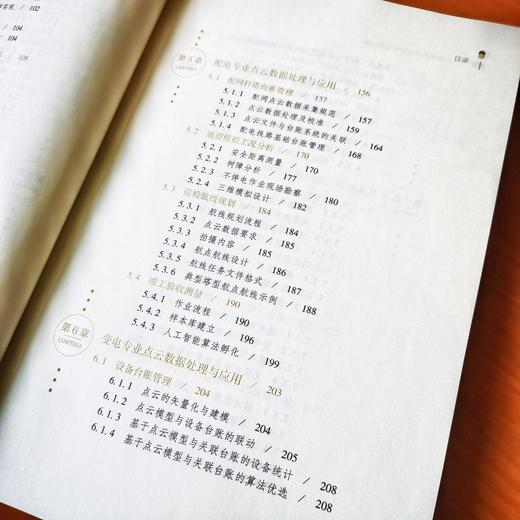 102
104
104
108
目录
第5章 配电专业点云数据处理与应用 / 156
CHAPTER 5
5.1 配网杆塔台账管理 / 157
5.1.1 配网点云数据采集规范 / 157
5.1.2 点云数据处理及校准 / 159
5.1.3 点云文件与台账系统的关联 / 164
5.1.4 配电线路基础台账管理 / 168
5.2 通道模拟工况分析 / 170
5.2.1 安全距离测量 / 170
5.2.2 树障分析 / 177
5.2.3 不停电作业现场勘察 / 180
5.2.4 三维模拟设计 / 182
5.3 巡检航线规划 / 184
5.3.1 航线规划流程 / 184
5.3.2 点云数据要求 / 185
5.3.3 拍摄内容 / 185
5.3.4 航点航线设计 / 186
5.3.5 航线任务文件格式 / 187
5.3.6 典型塔型航点航线示例 / 188
5.4 竣工验收测量 / 190
5.4.1 作业流程 / 190
5.4.2 样本库建立 / 195
5.4.3 人工智能算法孵化 / 199
第6章 变电专业点云数据处理与应用 / 203
CHAPTER 6
6.1 设备台账管理 / 204
6.1.1 点云的矢量化与建模 / 204
6.1.2 点云模型与设备台账的联动 / 205
6.1.3 基于点云模型与关联台账的设备统计 / 208
6.1.4 基于点云模型与关联台账的算法优选 / 208